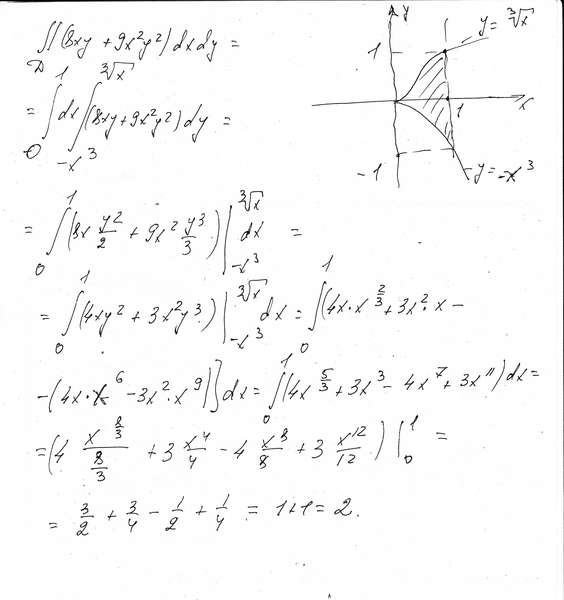 ∬(8xy + 9x²y²) dxdy =
D
= ∫₀¹ dx ∫_{-x³}^{∛x} (8xy + 9x²y²) dy =
= ∫₀¹ (8x y²/2 + 9x² y³/3) |_{-x³}^{∛x} dx =
= ∫₀¹ (4xy² + 3x²y³) |_{-x³}^{∛x} dx = ∫₀¹ (4x·x^{2/3} + 3x²·x −
−(4x·x⁶ − 3x²·x⁹)] dx = ∫₀¹ (4x^{5/3} + 3x³ − 4x⁷ + 3x¹¹) dx =
= (4 x^{8/3}/(8/3) + 3 x⁴/4 − 4 x⁸/8 + 3 x¹²/12) |₀¹ =
= 3/2 + 3/4 − 1/2 + 1/4 = 1+1 = 2.
y
y = ∛x
1
1
x
-1
y = -x³